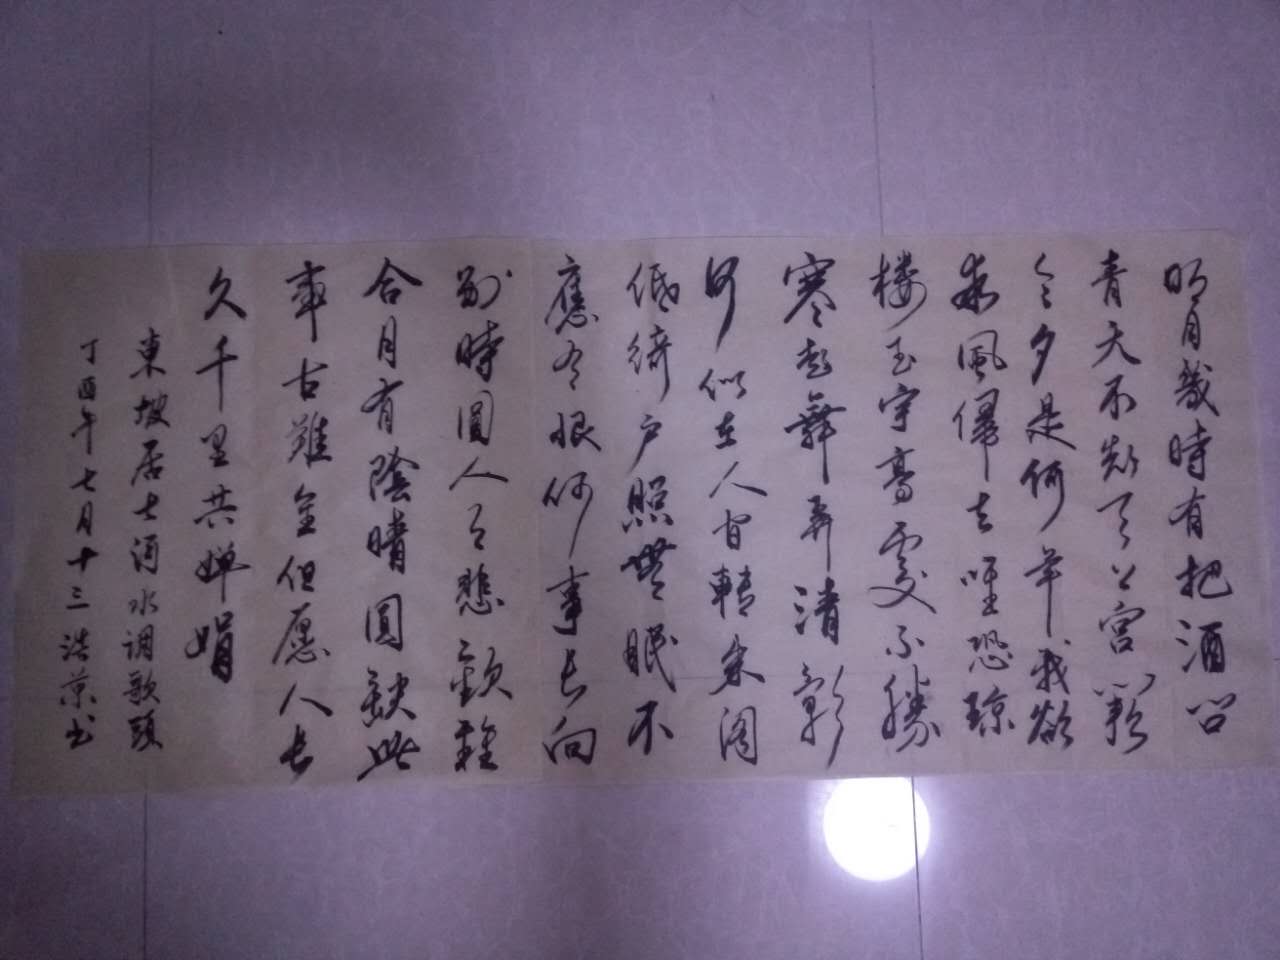 明月幾時有把酒问
青天不知天上宫闕
今夕是何年我欲
乘風歸去唯恐琼
楼玉宇高處不勝
寒起舞弄清影
何似在人间轉朱阁
低绮户照無眠不
應有恨何事长向
别時圓人有悲歡離
合月有陰晴圆缺此
事古難全但愿人长
久千里共婵娟
東坡居士词水调歌頭
丁酉年七月十三浩京书